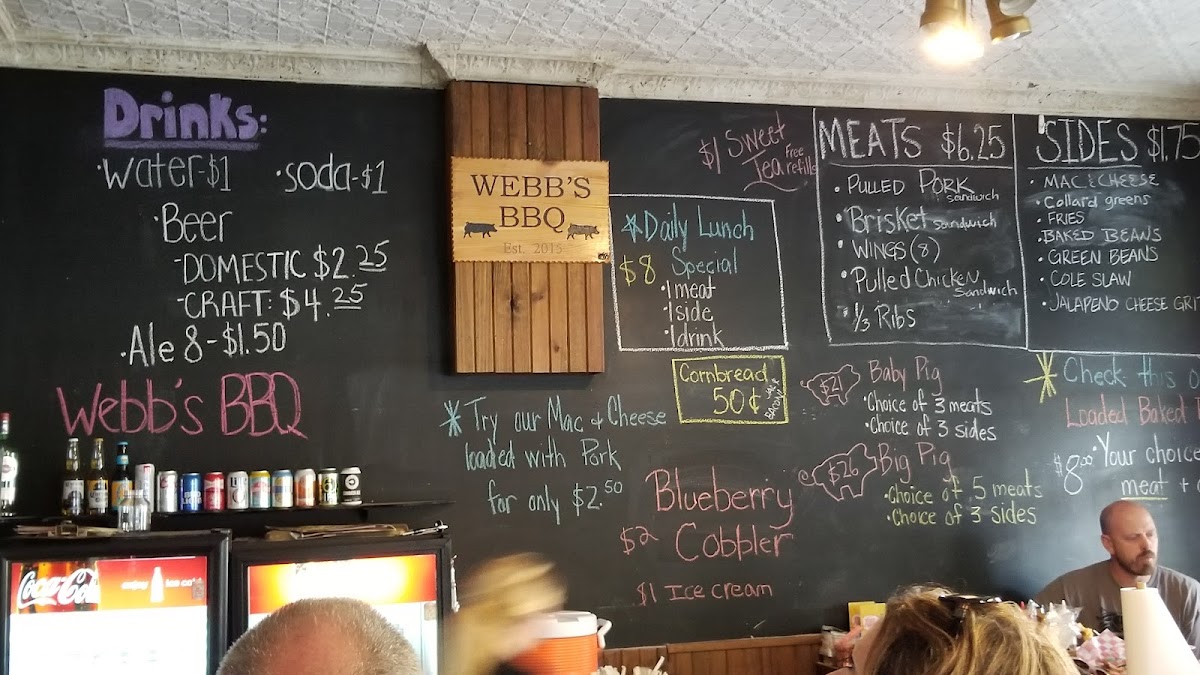 Drinks:
·water-$1 ·soda-$1
·Beer
-DOMESTIC $2.25
-CRAFT: $4.25
·Ale 8-$1.50
Webb's BBQ
WEBB'S
BBQ
Est. 2015
$1 Sweet
Tea Free
refills
*Daily Lunch
$8 Special
·1 meat
·1 side
·1 drink
Cornbread
50¢
*Try our Mac & Cheese
loaded with Pork
for only $2.50
Blueberry
$2 Cobbler
$1 Ice cream
MEATS $6.25
·PULLED PORK sandwich
·BrisKet sandwich
·WINGS (8)
·Pulled Chicken Sandwich
·1/3 Ribs
SIDES $1.75
·MAC & CHEESE
·Collard greens
·FRIES
·BAKED BEANS
·GREEN BEANS
·COLE SLAW
·JALAPENO CHEESE GRIT
$21 Baby Pig
·Choice of 3 meats
·Choice of 3 sides
$26 Big Pig
·Choice of 5 meats
·Choice of 3 sides
*Check this
Loaded Baked
$8.00 ·Your choice
meat +
Coca-Cola
enjoy ice co